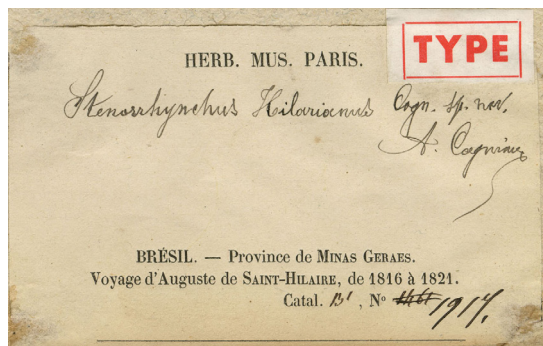 TYPE
HERB. MUS. PARIS.
Stenorrhynchus Hilarianus Cogn. sp. nov.
A. Cogniaux
BRÉSIL. — Province de MINAS GERAES.
Voyage d'Auguste de SAINT-HILAIRE, de 1816 à 1821.
Catal. B¹, Nº 1917.